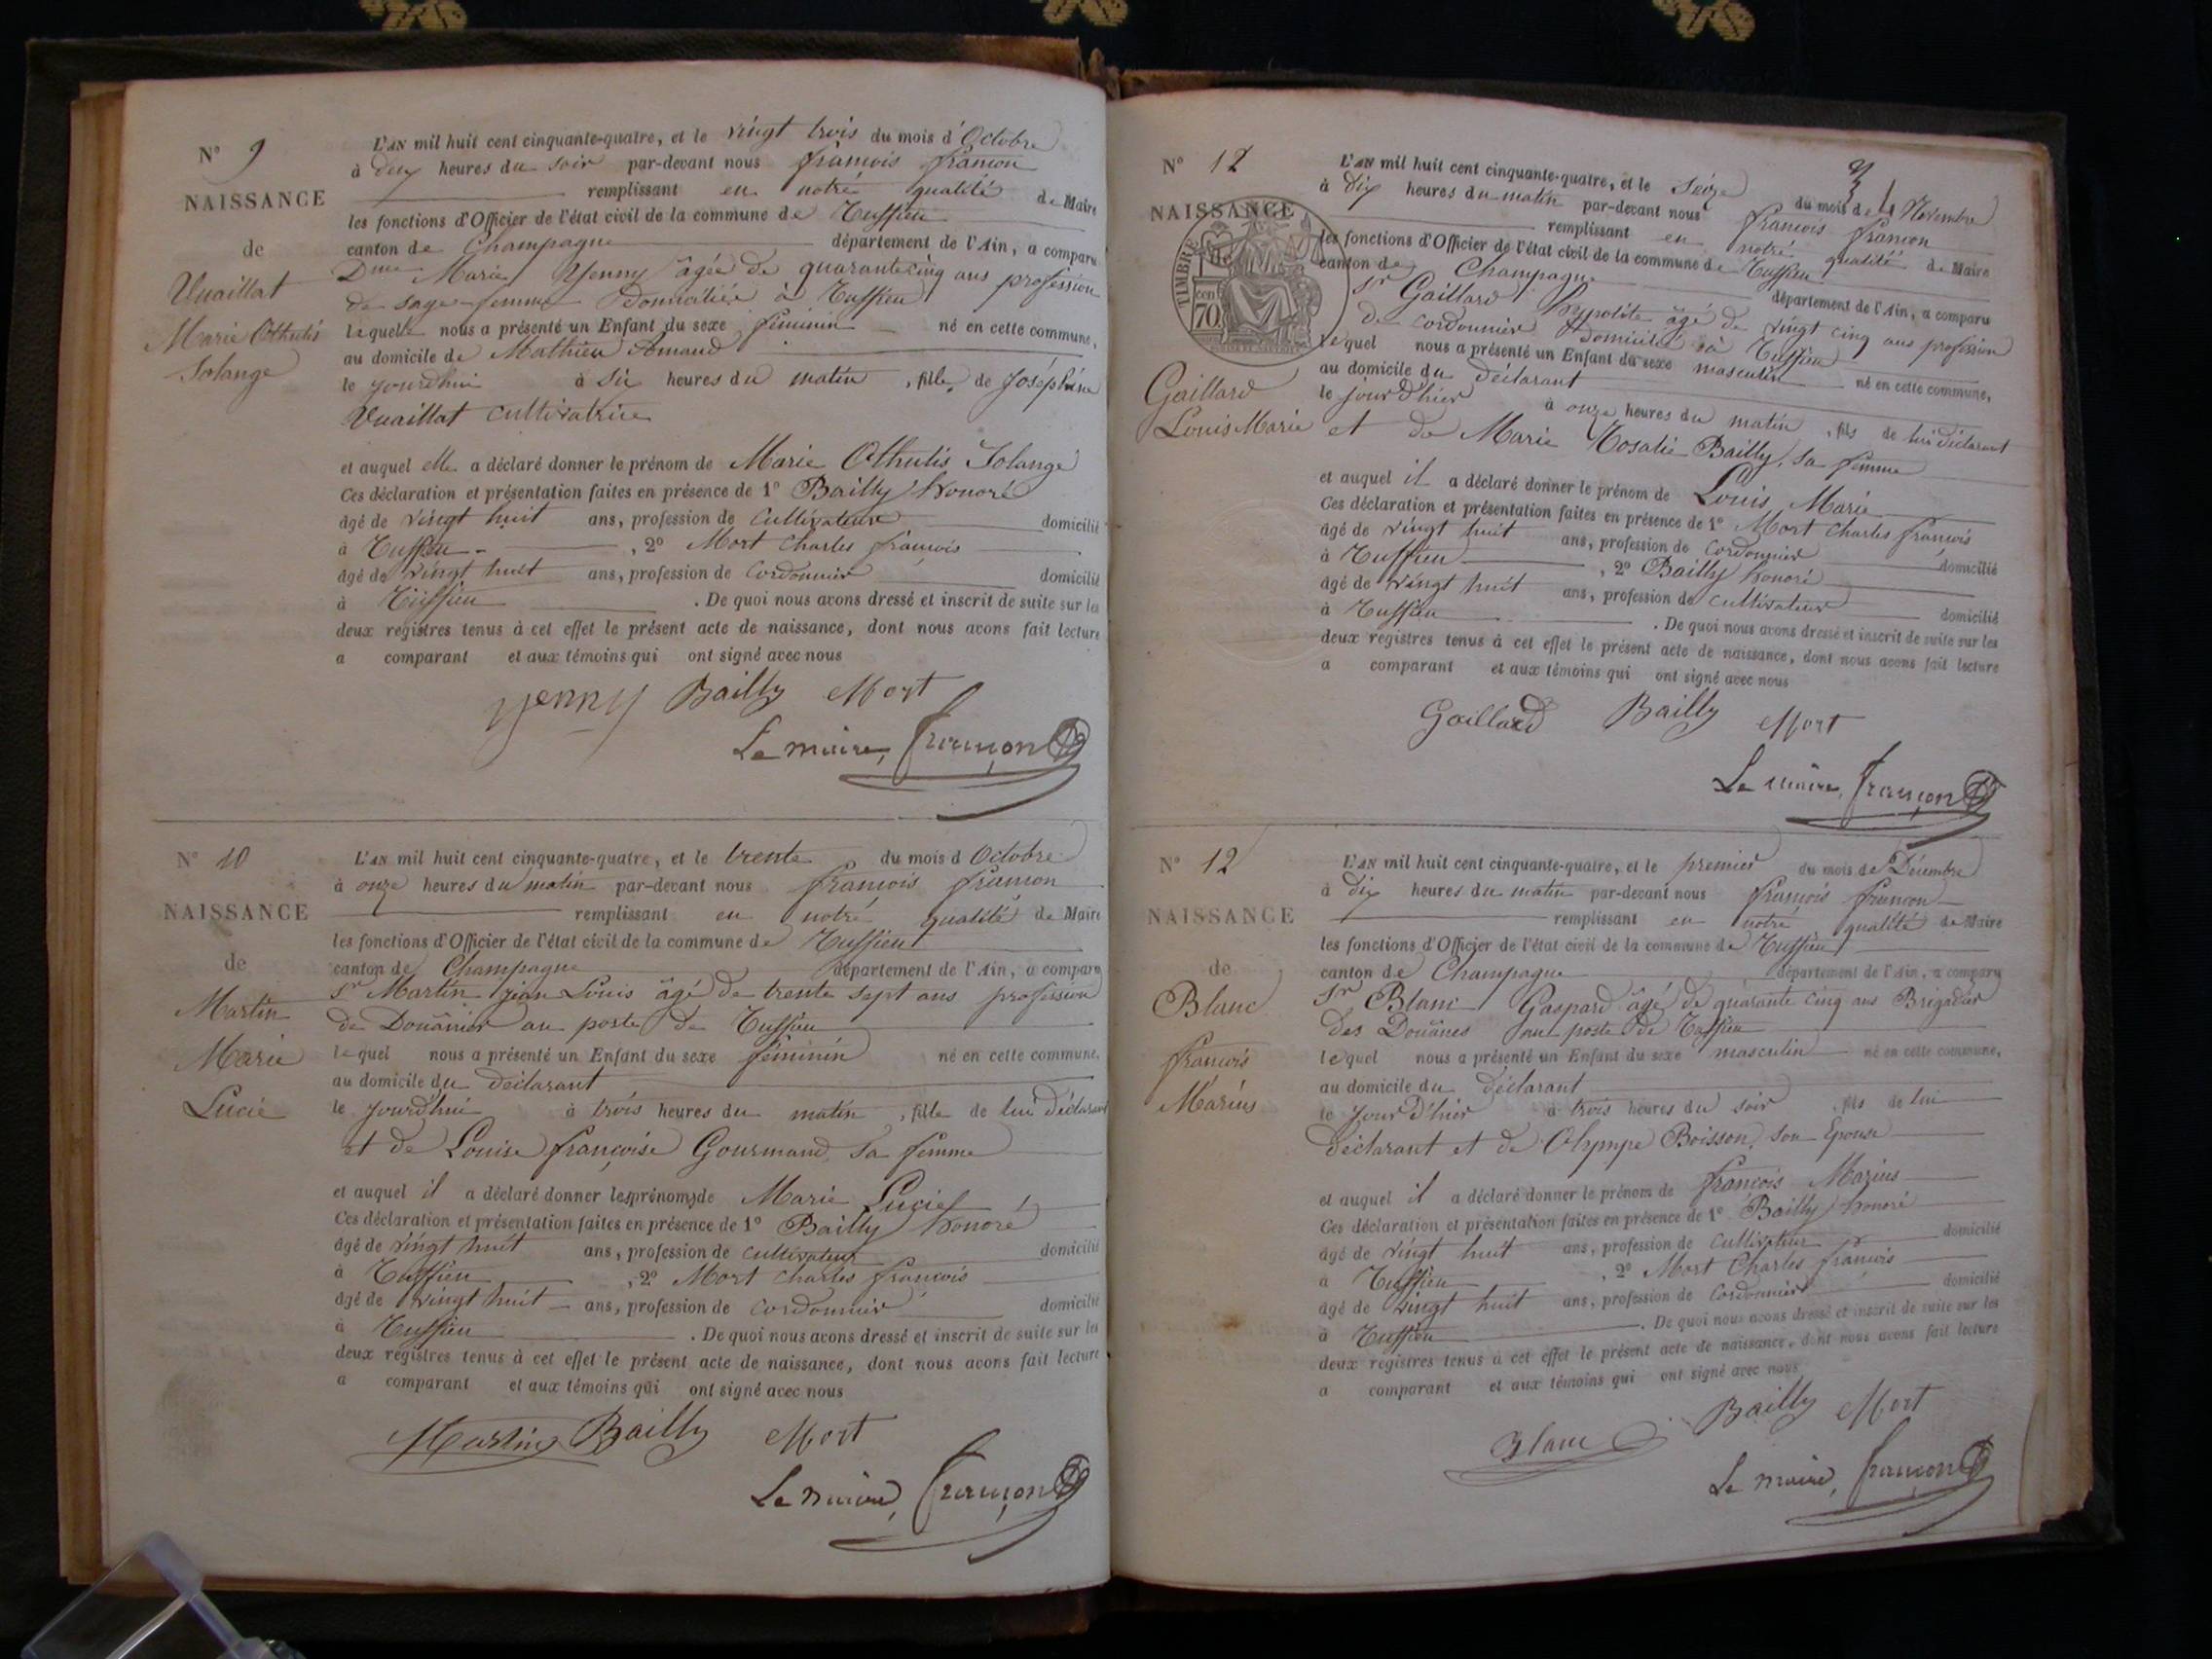 N° 9
NAISSANCE
de
Vuaillat
Marie Othulis
Solange
L'AN mil huit cent cinquante-quatre, et le vingt trois du mois d'Octobre
à deux heures du soir par-devant nous francois francon
remplissant en notre qualité de Maire
les fonctions d'Officier de l'état civil de la commune de Tussieu
canton de Champagne département de l'Ain, a comparu
Dme Marie Yenny âgée de quarante cinq ans profession
de sage-femme domiciliée à Tussieu
lequelle nous a présenté un Enfant du sexe féminin né en cette commune,
au domicile de Mathieu Armand
le jourd'hui à six heures du matin, fille de Joséphine
Vuaillat cultivatrice
et auquel elle a déclaré donner le prénom de Marie Othulis Solange
Ces déclaration et présentation faites en présence de 1° Bailly honoré
âgé de vingt huit ans, profession de cultivateur domicilié
à Tussieu , 2° Mort Charles françois
âgé de vingt huit ans, profession de cordonnier domicilié
à Tussieu . De quoi nous avons dressé et inscrit de suite sur les
deux registres tenus à cet effet le présent acte de naissance, dont nous avons fait lecture
a comparant et aux témoins qui ont signé avec nous
yenny Bailly Mort
Le maire, françon
N° 10
NAISSANCE
de
Martin
Marie
Lucie
L'AN mil huit cent cinquante-quatre, et le trente du mois d Octobre
à onze heures du matin par-devant nous francois francon
remplissant en notre qualité de Maire
les fonctions d'Officier de l'état civil de la commune de Tussieu
canton de Champagne département de l'Ain, a comparu
Sr Martin jean Louis âgé de trente sept ans profession
de Douânier au poste de Tussieu
lequel nous a présenté un Enfant du sexe féminin né en cette commune,
au domicile du déclarant
le jourd'hui à trois heures du matin, fille de lui déclarant
et de Louise françoise Gourmand, sa femme
et auquel il a déclaré donner les prénoms de Marie Lucie
Ces déclaration et présentation faites en présence de 1° Bailly honoré
âgé de vingt huit ans, profession de cultivateur domicilié
à Tussieu , 2° Mort Charles françois
âgé de vingt huit ans, profession de cordonnier domicilié
à Tussieu . De quoi nous avons dressé et inscrit de suite sur les
deux registres tenus à cet effet le présent acte de naissance, dont nous avons fait lecture
a comparant et aux témoins qui ont signé avec nous
Martin Bailly Mort
Le maire, françon
N° 12
NAISSANCE
TIMBRE
70
Gaillard
Louis Marie
L'AN mil huit cent cinquante-quatre, et le seize du mois de Novembre
à dix heures du matin par-devant nous francois francon
remplissant en notre qualité de Maire
les fonctions d'Officier de l'état civil de la commune de Tussieu
canton de Champagne département de l'Ain, a comparu
Sr Gaillard hypolite âgé de vingt cinq ans profession
de cordonnier domicilié à Tussieu
lequel nous a présenté un Enfant du sexe masculin né en cette commune,
au domicile du déclarant
le jour d'hier à onze heures du matin, fils de lui déclarant
et de Marie Rosalie Bailly, sa femme
et auquel il a déclaré donner le prénom de Louis Marie
Ces déclaration et présentation faites en présence de 1° Mort Charles françois
âgé de vingt huit ans, profession de cordonnier domicilié
à Tussieu , 2° Bailly honoré
âgé de vingt huit ans, profession de cultivateur domicilié
à Tussieu . De quoi nous avons dressé et inscrit de suite sur les
deux registres tenus à cet effet le présent acte de naissance, dont nous avons fait lecture
a comparant et aux témoins qui ont signé avec nous
Gaillard Bailly Mort
Le maire, françon
N° 12
NAISSANCE
de
Blanc
francois
Marius
L'AN mil huit cent cinquante-quatre, et le premier du mois de Décembre
à dix heures du matin par-devant nous francois francon
remplissant en notre qualité de Maire
les fonctions d'Officier de l'état civil de la commune de Tussieu
canton de Champagne département de l'Ain, a comparu
Sr Blanc Gaspard âgé de quarante cinq ans Brigadier
des Douânes au poste de Tussieu
lequel nous a présenté un Enfant du sexe masculin né en cette commune,
au domicile du déclarant
le jour d'hier à trois heures du soir, fils de lui
déclarant et de Olympe Boisson, son Epouse
et auquel il a déclaré donner le prénom de françois Marius
Ces déclaration et présentation faites en présence de 1° Bailly honoré
âgé de vingt huit ans, profession de cultivateur domicilié
à Tussieu , 2° Mort Charles francois
âgé de vingt huit ans, profession de cordonnier domicilié
à Tussieu . De quoi nous avons dressé et inscrit de suite sur les
deux registres tenus à cet effet le présent acte de naissance, dont nous avons fait lecture
a comparant et aux témoins qui ont signé avec nous
Blanc Bailly Mort
Le maire, françon